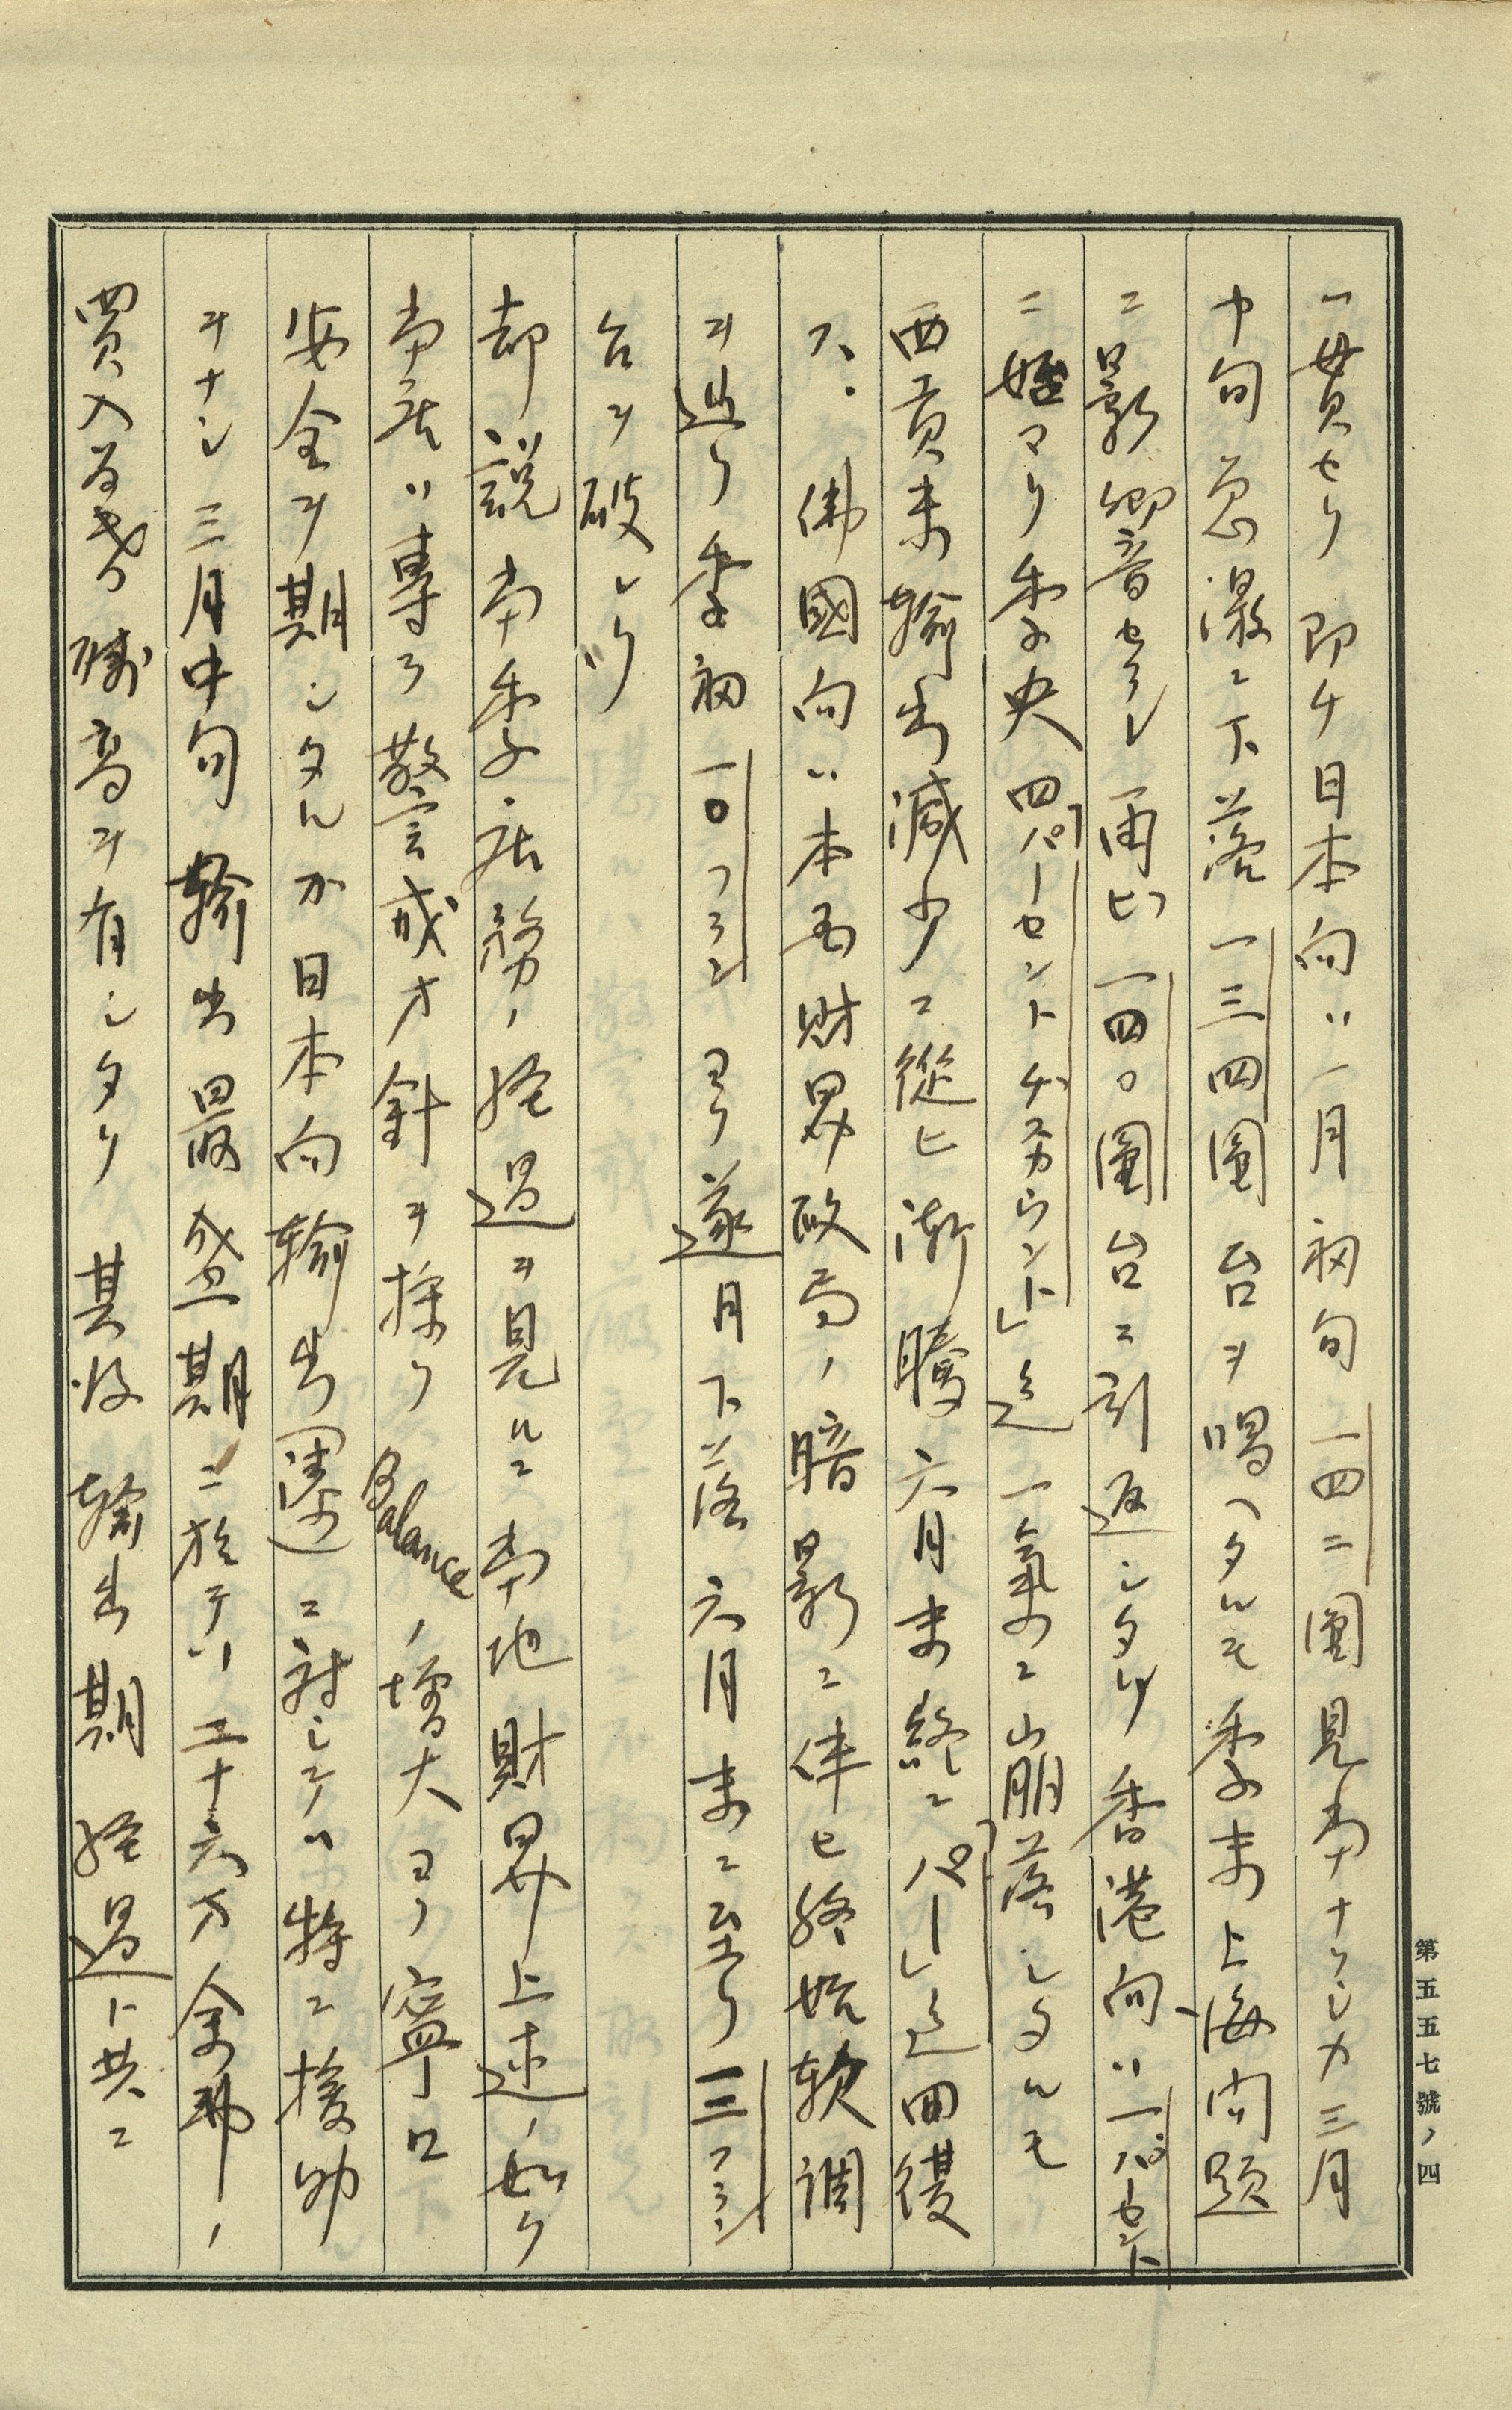 一貫セリ 即チ日本向ハ一月初旬一四二圓見當ナリシカ三月
中旬急激ニ下落一三四圓台ヲ唱ヘタルモ季末上海問題
ニ影響セラレ再ヒ一四〇圓台ニ引返シタリ香港向ハ一パーセント
ニ始マリ季央四「パーセントヂスカウント」迄一氣ニ崩落シタルモ
西貢米輸出減少ニ從ヒ漸騰六月末終ニ「パー」迄回復
ス、佛國向ハ本国財界政局ノ暗影ニ伴ヒ終始軟調
ヲ辿リ季初一〇フラン ヨリ遂月下落六月末ニ至リ一三フラン
台ヲ破レリ
却説当季店務ノ経過ヲ見ルニ当地財界上述ノ如ク
当店ハ專ラ警戒方針ヲ採リ Balance ノ增大ヨリ寧ロ
安全ヲ期シタルカ日本向輸出運ニ対シテハ特ニ援助
ヲナシ三月中旬輸出最盛期ニ於テハ五十六万余弗ノ
買入為替残高ヲ有シタリ 其後輸出期経過ト共ニ
第五五七號ノ四